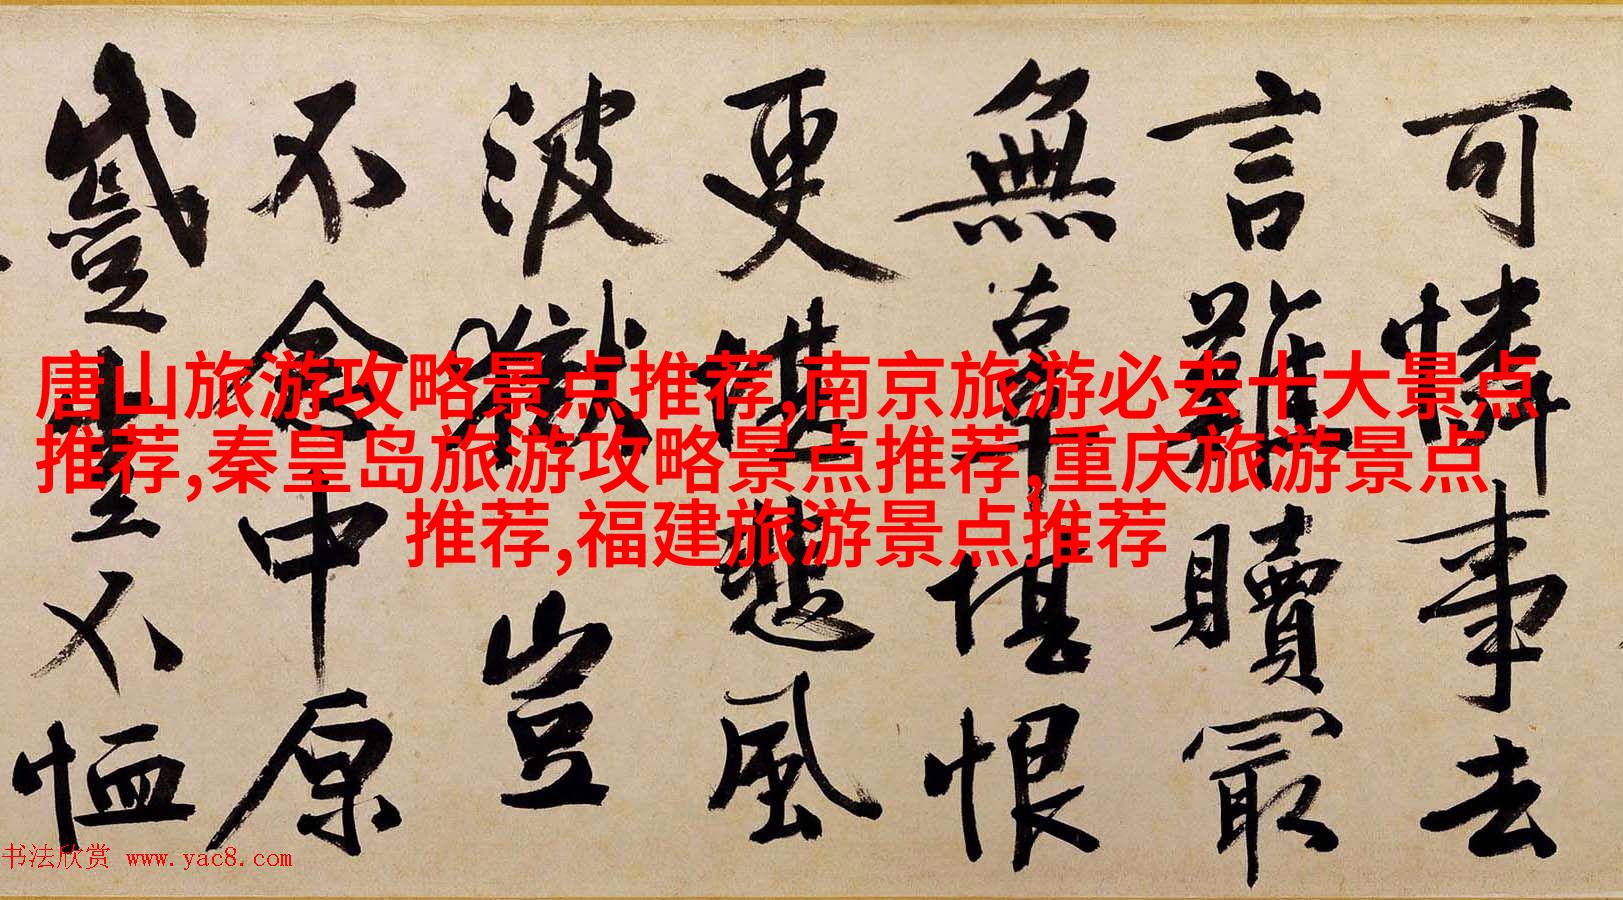 可憐事去
言難贖最
無辜堪恨
更堪悲風
波獄豈
不念中原
蹙豈不恤
唐山旅游攻略景点推荐,南京旅游必去十大景点
推荐,秦皇岛旅游攻略景点推荐,重庆旅游景点
推荐,福建旅游景点推荐
书法欣赏 www.yac8.com